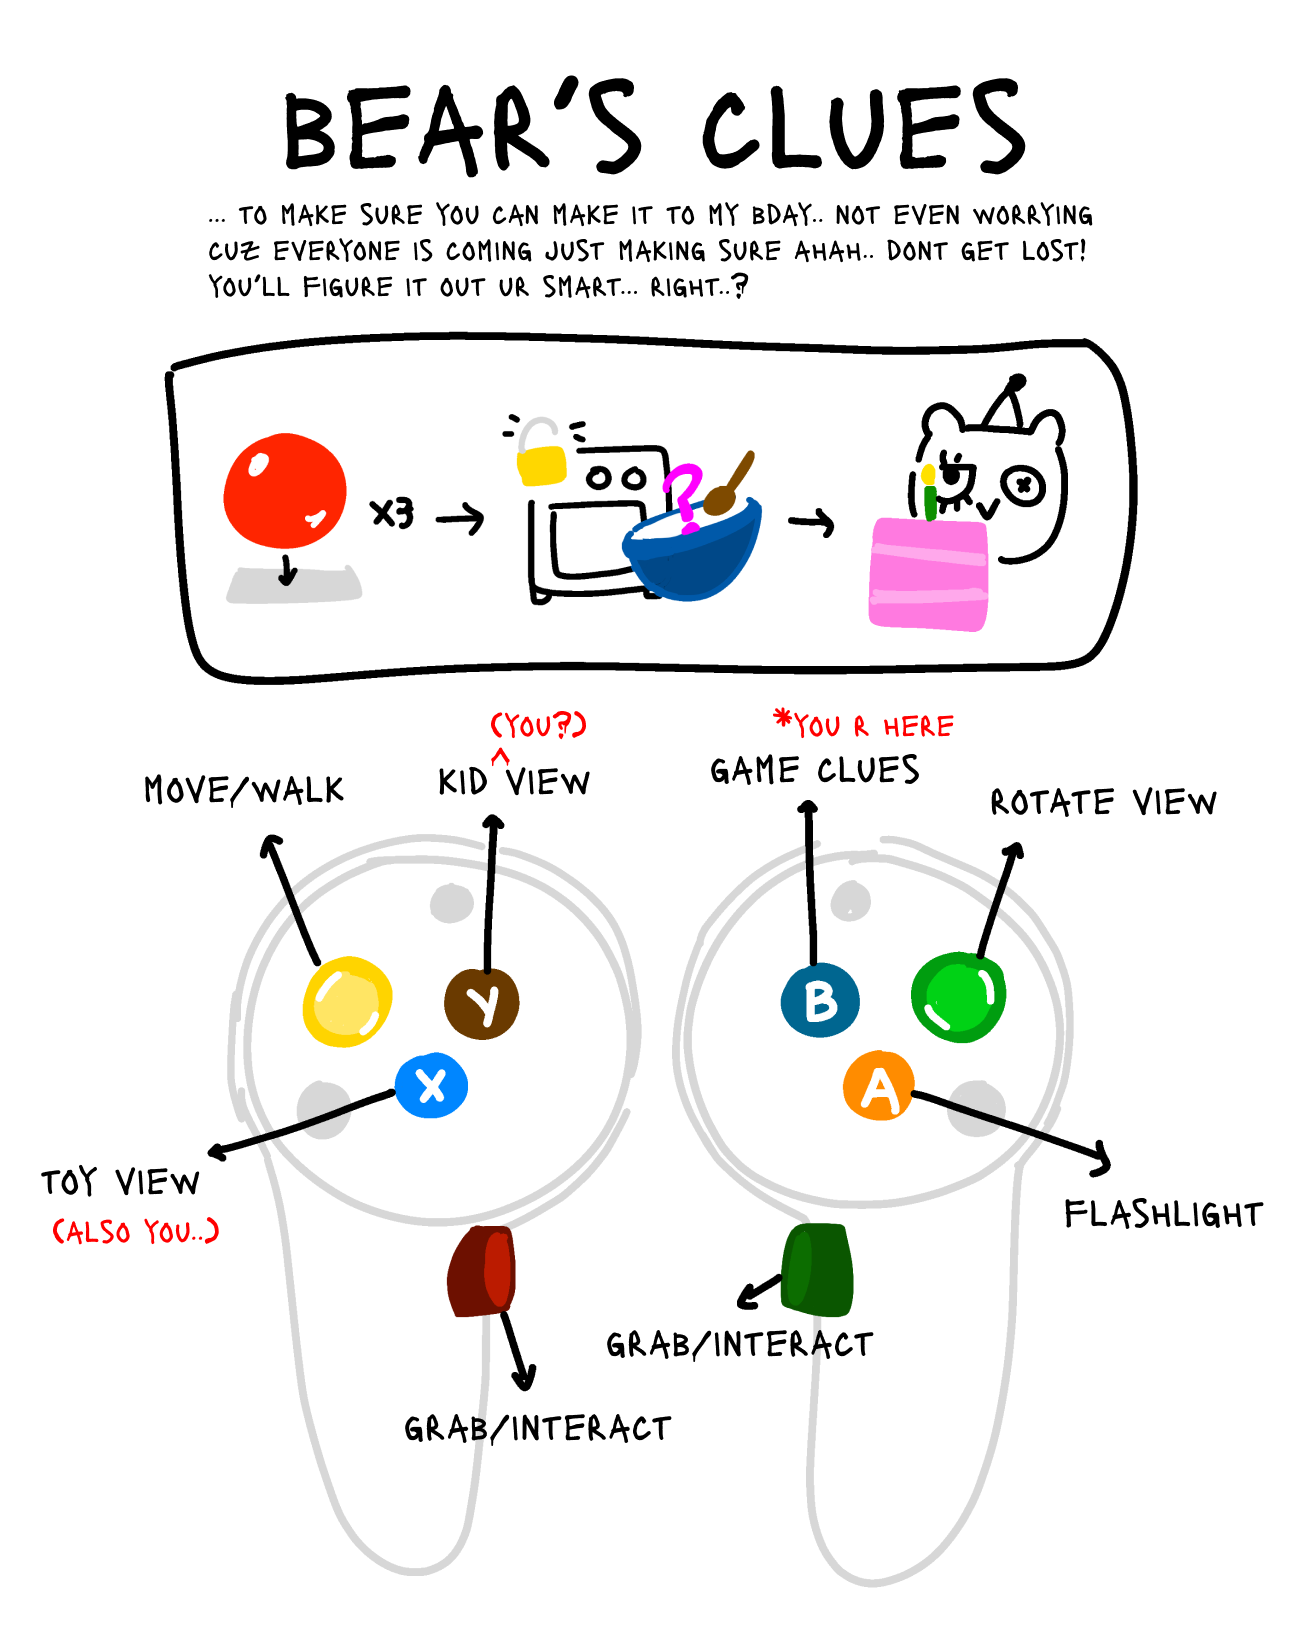 BEAR'S CLUES
... TO MAKE SURE YOU CAN MAKE IT TO MY BDAY.. NOT EVEN WORRYING
CUZ EVERYONE IS COMING JUST MAKING SURE AHAH.. DONT GET LOST!
YOU'LL FIGURE IT OUT UR SMART... RIGHT..?
X3
?
(YOU?)
^
KID VIEW
*YOU R HERE
GAME CLUES
MOVE/WALK
ROTATE VIEW
Y
B
X
A
TOY VIEW
(ALSO YOU..)
FLASHLIGHT
GRAB/INTERACT
GRAB/INTERACT